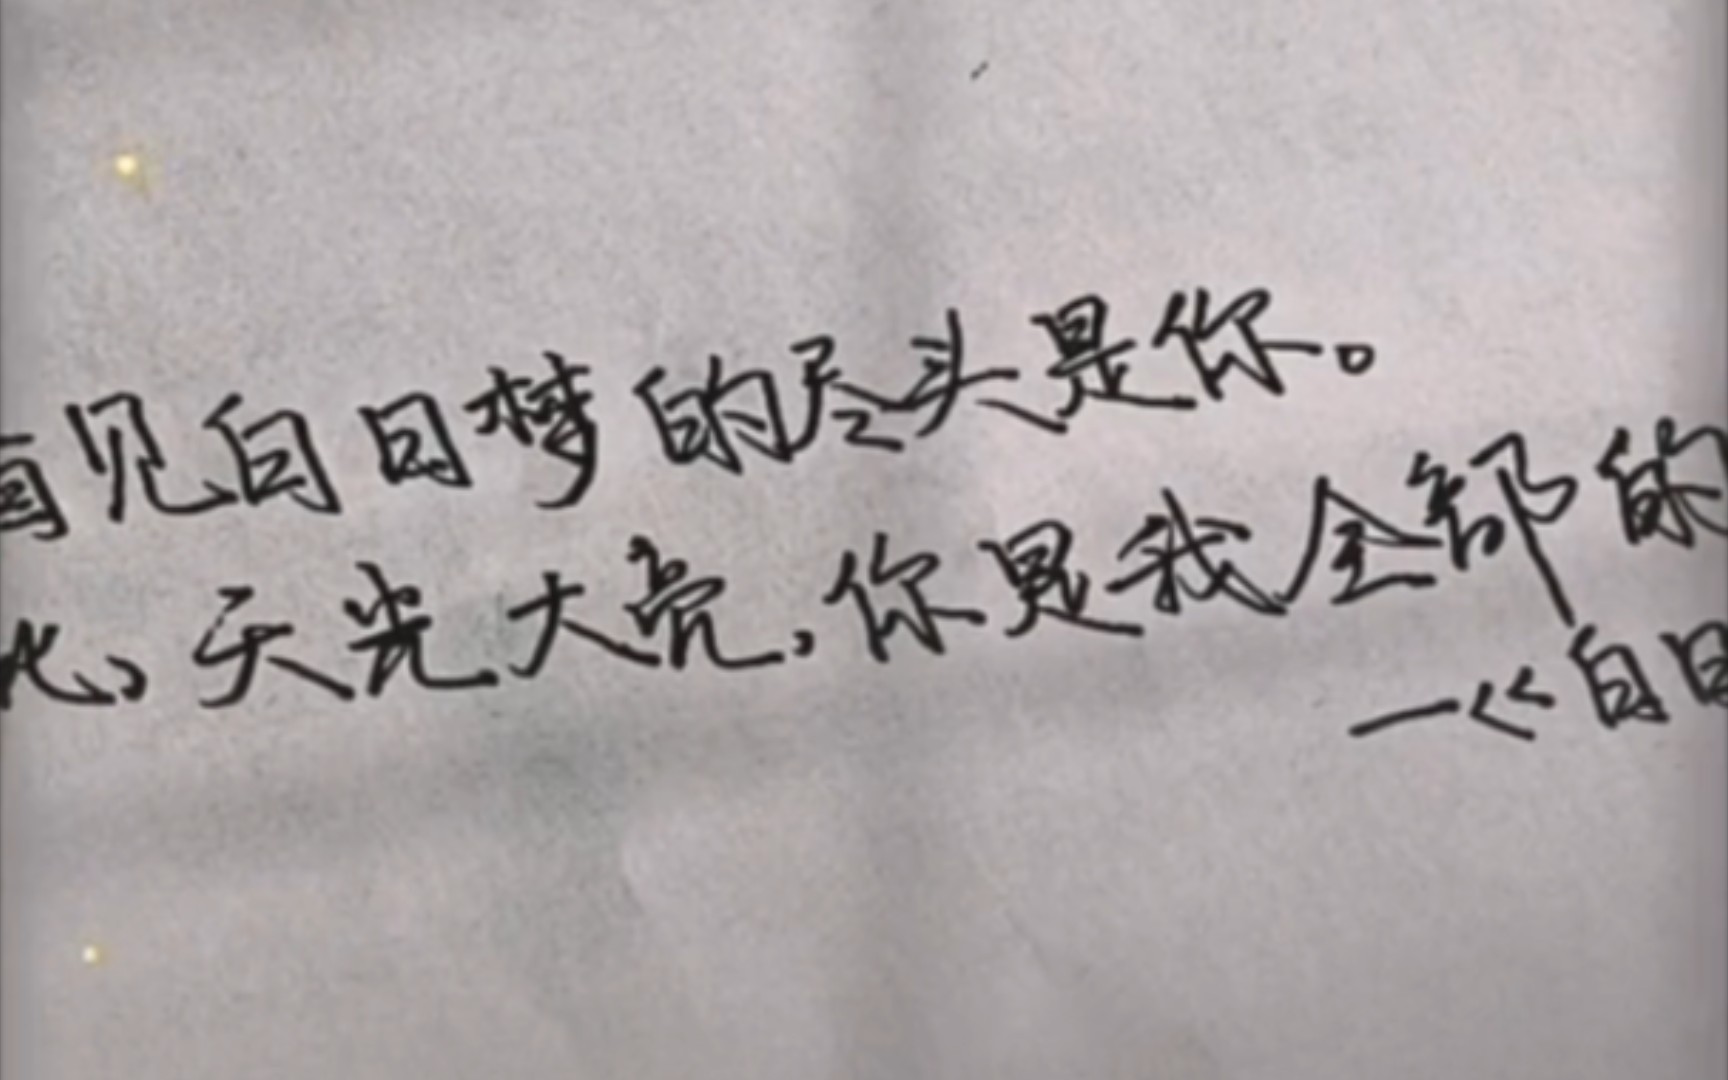 看见白日梦的尽头是你。
此、天光大亮,你是我全部的
—《白日